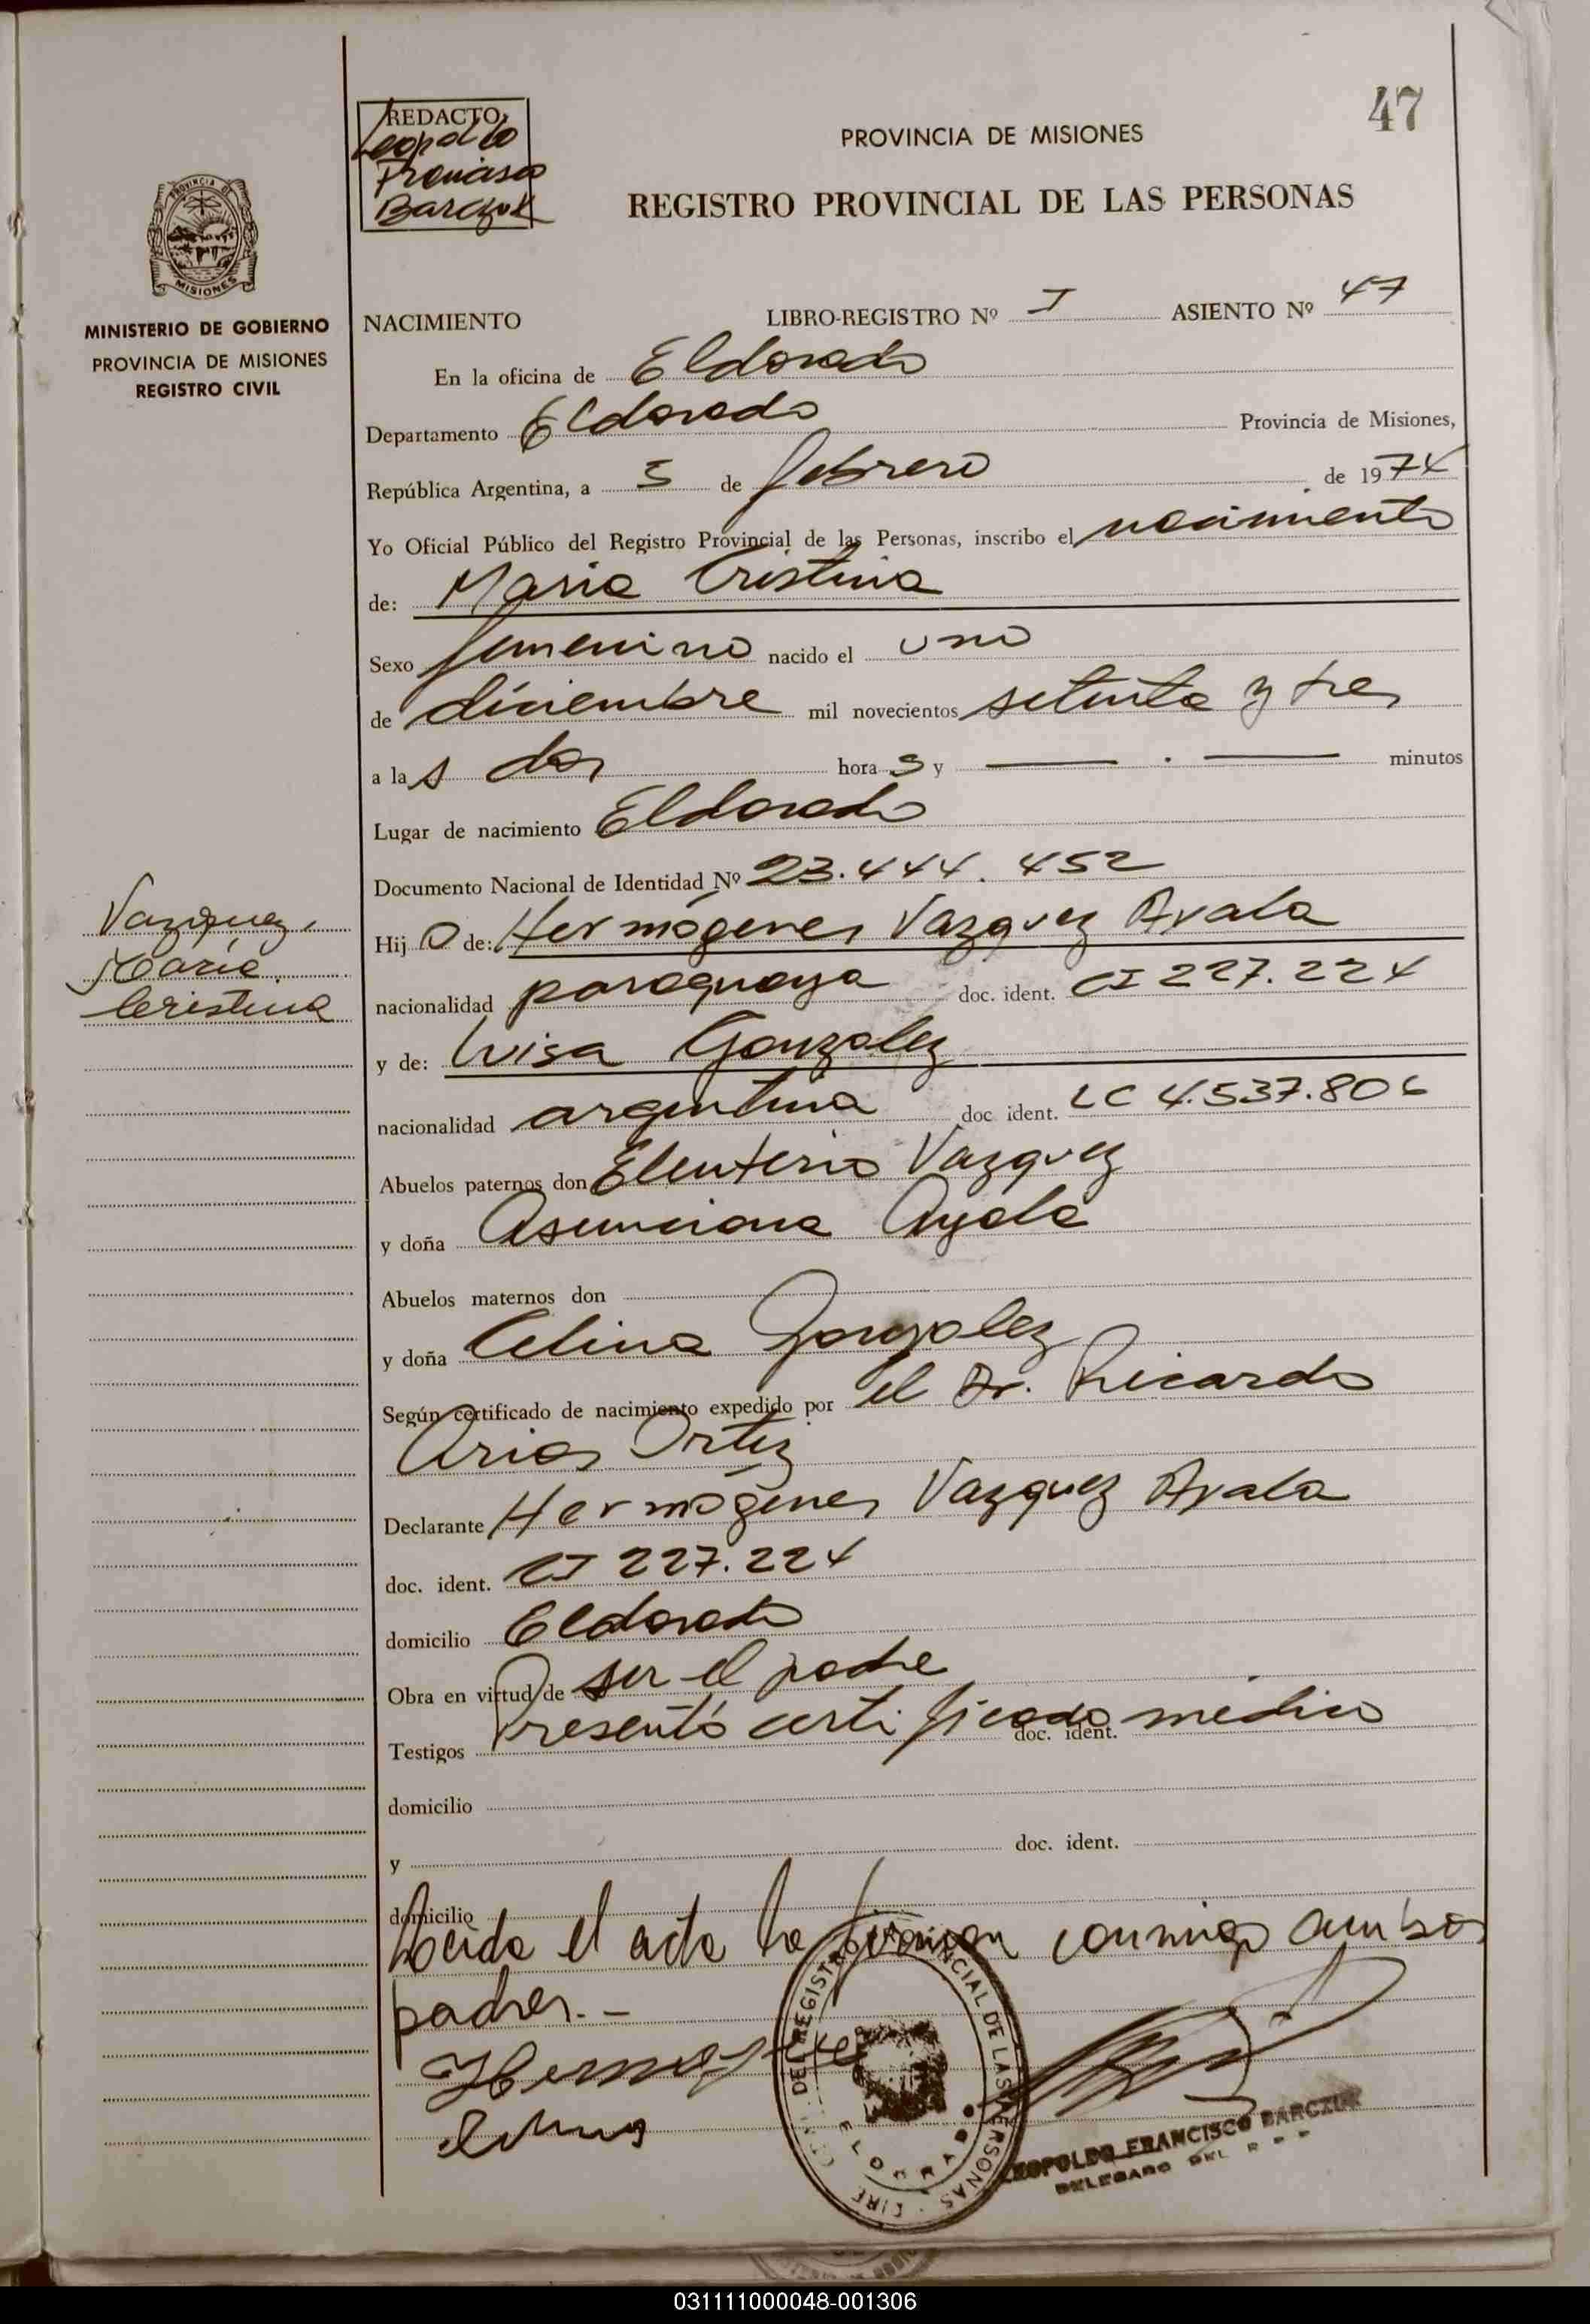 47
REDACTO
Leopoldo
Francisco
Barczuk
PROVINCIA DE MISIONES
REGISTRO PROVINCIAL DE LAS PERSONAS
PROVINCIA DE
MISIONES
MINISTERIO DE GOBIERNO
PROVINCIA DE MISIONES
REGISTRO CIVIL
NACIMIENTO LIBRO-REGISTRO Nº I ASIENTO Nº 47
En la oficina de Eldorado
Departamento Eldorado Provincia de Misiones,
República Argentina, a 5 de febrero de 1974
Yo Oficial Público del Registro Provincial de las Personas, inscribo el nacimiento
de: Maria Cristina
Sexo femenino nacido el uno
de diciembre mil novecientos setenta y tres
a las dos horas y — . — minutos
Lugar de nacimiento Eldorado
Documento Nacional de Identidad Nº 23.444.452
Vazquez,
Maria
Cristina
Hij a de: Hermógenes Vazquez Ayala
nacionalidad paraguaya doc. ident. CI 227.224
y de: Luisa Gonzalez
nacionalidad argentina doc ident. LC 4.537.806
Abuelos paternos don Eleuterio Vazquez
y doña Asunciona Ayala
Abuelos maternos don
y doña Celina Gonzalez
Según certificado de nacimiento expedido por el Dr. Ricardo
Arias Ortiz
Declarante Hermógenes Vazquez Ayala
doc. ident. CI 227.224
domicilio Eldorado
Obra en virtud de ser el padre
Testigos Presentó certificado médico doc. ident.
domicilio
y doc. ident.
domicilio
Leida el acta la firman conmigo ambos
padres.-
DEL REGISTRO PROVINCIAL DE LAS PERSONAS
ELDORADO
LEOPOLDO FRANCISCO BARCZUK
DELEGADO DEL R P P
031111000048-001306